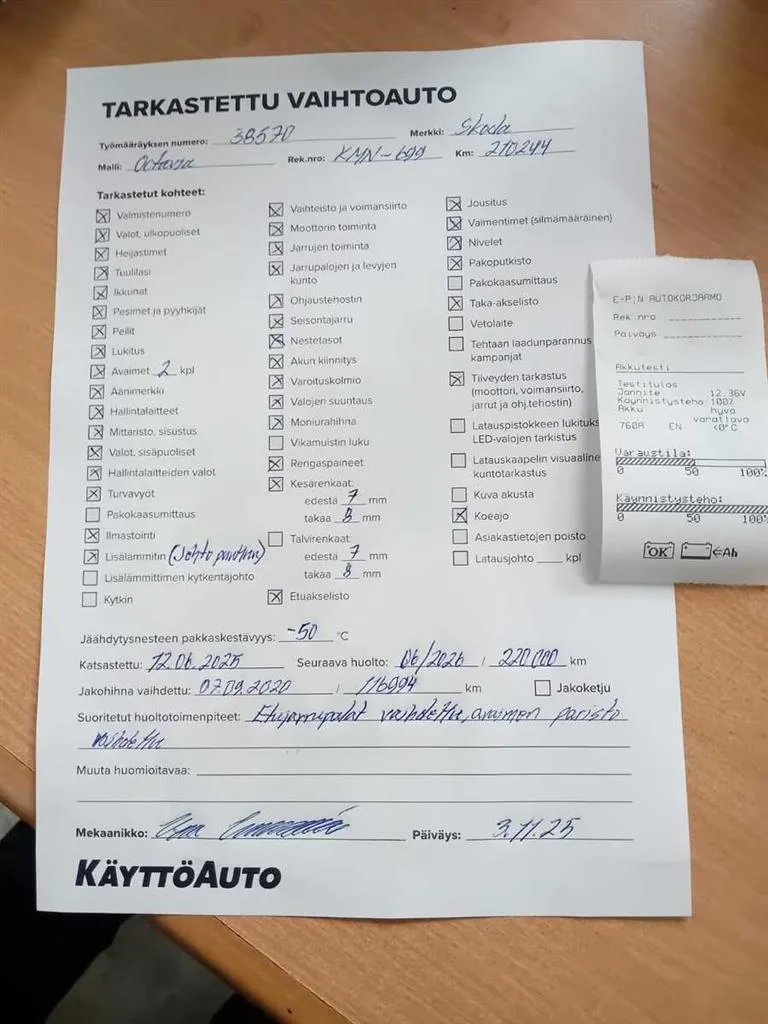 TARKASTETTU VAIHTOAUTO
Työmääräyksen numero: 38570 Merkki: Skoda
Malli: Octavia Rek.nro: KMN-699 Km: 210244
Tarkastetut kohteet:
Valmistenumero
Valot, ulkopuoliset
Heijastimet
Tuulilasi
Ikkunat
Pesimet ja pyyhkijät
Peilit
Lukitus
Avaimet 2 kpl
Äänimerkki
Hallintalaitteet
Mittaristo, sisustus
Valot, sisäpuoliset
Hallintalaitteiden valot
Turvavyöt
Pakokaasumittaus
Ilmastointi
Lisälämmitin (Johto puuttuu)
Lisälämmittimen kytkentäjohto
Kytkin
Vaihteisto ja voimansiirto
Moottorin toiminta
Jarrujen toiminta
Jarrupalojen ja levyjen
kunto
Ohjaustehostin
Seisontajarru
Nestetasot
Akun kiinnitys
Varoituskolmio
Valojen suuntaus
Moniurahihna
Vikamuistin luku
Rengaspaineet
Kesärenkaat:
edestä 7 mm
takaa 8 mm
Talvirenkaat:
edestä 7 mm
takaa 8 mm
Etuakselisto
Jousitus
Vaimentimet (silmämääräinen)
Nivelet
Pakoputkisto
Pakokaasumittaus
Taka-akselisto
Vetolaite
Tehtaan laadunparannus
kampanjat
Tiiveyden tarkastus
(moottori, voimansiirto,
jarrut ja ohj.tehostin)
Latauspistokkeen lukituks
LED-valojen tarkistus
Latauskaapelin visuaaline
kuntotarkastus
Kuva akusta
Koeajo
Asiakastietojen poisto
Latausjohto kpl
Jäähdytysnesteen pakkaskestävyys: -50 °C
Katsastettu: 12.06.2025 Seuraava huolto: 06/2026 / 220 000 km
Jakohihna vaihdettu: 07.09.2020 / 116994 km Jakoketju
Suoritetut huoltotoimenpiteet: Etujarrupalat vaihdettu, avaimen paristo
vaihdettu
Muuta huomioitavaa:
Mekaanikko: Päiväys: 3.11.25
KÄYTTÖAUTO
E-P:N AUTOKORJAAMO
Rek.nro
Päiväys
Akkutesti
Testitulos
Jännite 12.36V
Käynnistysteho 100%
Akku hyvä
varattava
760A EN <0°C
Varaustila:
0 50 100%
Käynnistysteho:
0 50 100%
OK Ah